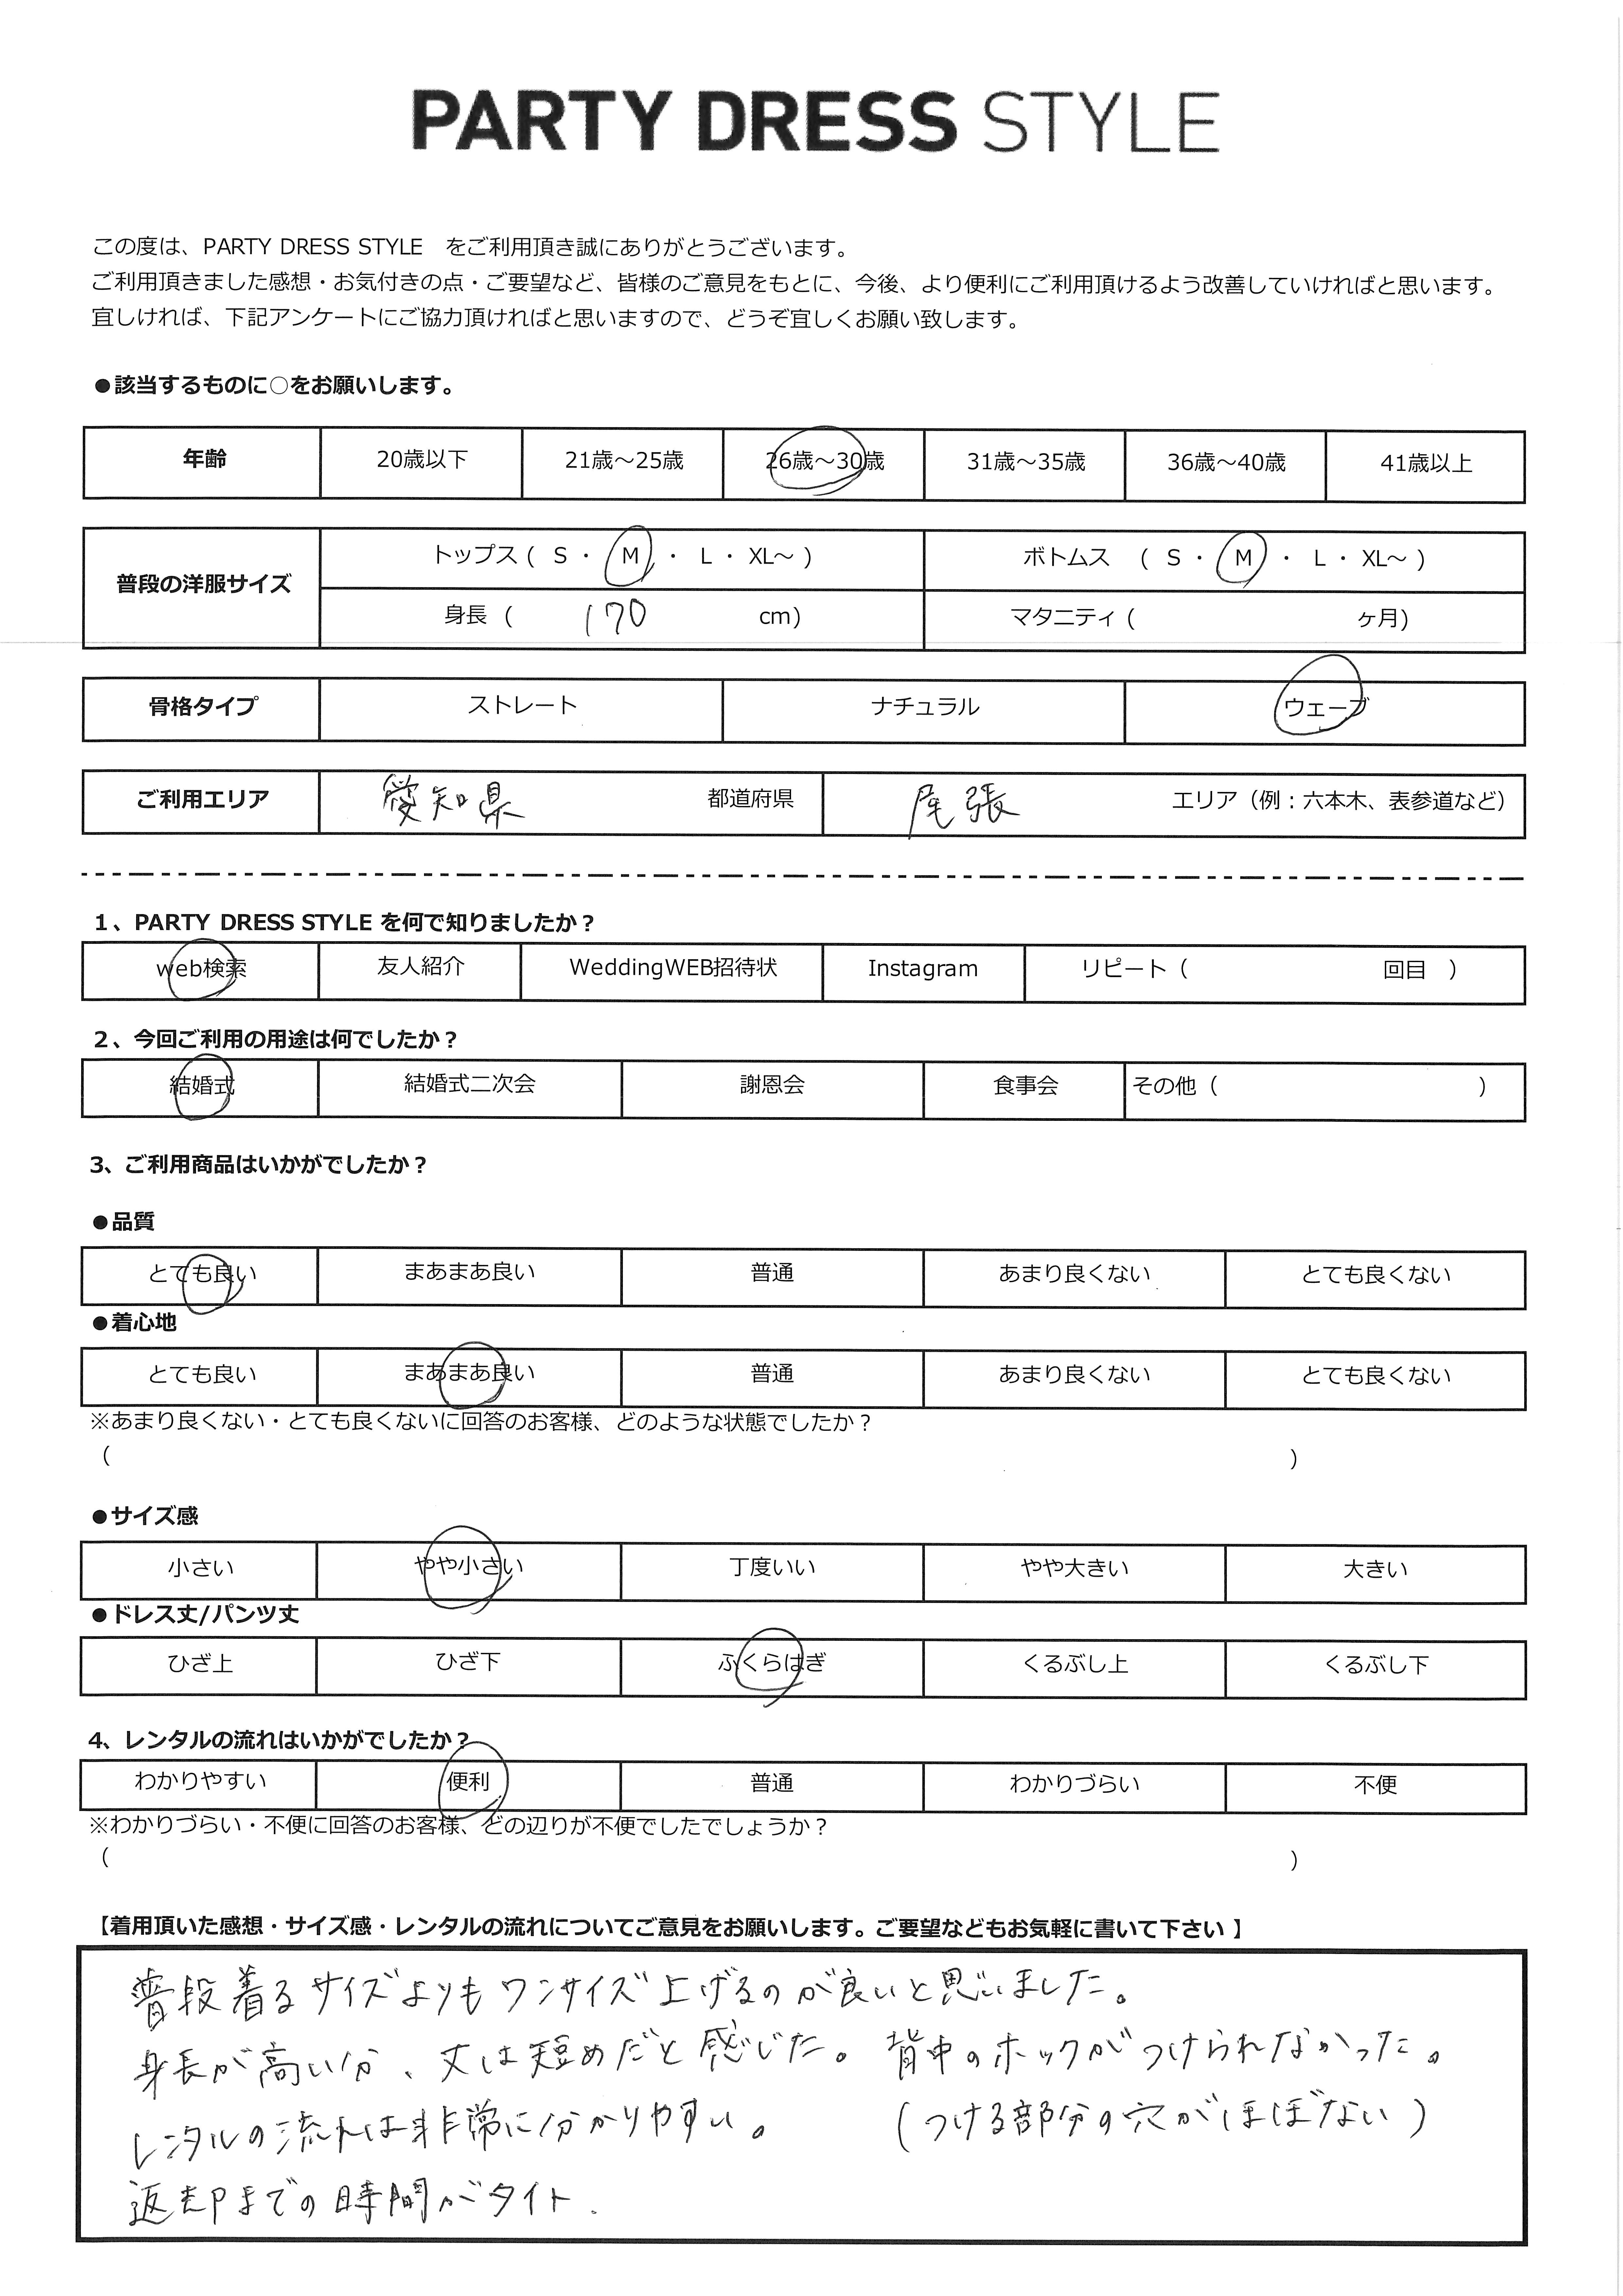 PARTY DRESS STYLE
この度は、PARTY DRESS STYLE　をご利用頂き誠にありがとうございます。
ご利用頂きました感想・お気付きの点・ご要望など、皆様のご意見をもとに、今後、より便利にご利用頂けるよう改善していければと思います。
宜しければ、下記アンケートにご協力頂ければと思いますので、どうぞ宜しくお願い致します。
●該当するものに○をお願いします。
年齢 20歳以下 21歳～25歳 26歳～30歳 31歳～35歳 36歳～40歳 41歳以上
普段の洋服サイズ トップス ( S ・ M ・ L ・ XL～ ) ボトムス ( S ・ M ・ L ・ XL～ )
身長 ( 170 cm) マタニティ ( ヶ月)
骨格タイプ ストレート ナチュラル ウェーブ
ご利用エリア 愛知県 都道府県 尾張 エリア（例：六本木、表参道など）
1、PARTY DRESS STYLE を何で知りましたか？
web検索 友人紹介 WeddingWEB招待状 Instagram リピート（ 回目 ）
2、今回ご利用の用途は何でしたか？
結婚式 結婚式二次会 謝恩会 食事会 その他（ ）
3、ご利用商品はいかがでしたか？
●品質
とても良い まあまあ良い 普通 あまり良くない とても良くない
●着心地
とても良い まあまあ良い 普通 あまり良くない とても良くない
※あまり良くない・とても良くないに回答のお客様、どのような状態でしたか？
（ ）
●サイズ感
小さい やや小さい 丁度いい やや大きい 大きい
●ドレス丈/パンツ丈
ひざ上 ひざ下 ふくらはぎ くるぶし上 くるぶし下
4、レンタルの流れはいかがでしたか？
わかりやすい 便利 普通 わかりづらい 不便
※わかりづらい・不便に回答のお客様、どの辺りが不便でしたでしょうか？
（ ）
【着用頂いた感想・サイズ感・レンタルの流れについてご意見をお願いします。ご要望などもお気軽に書いて下さい 】
普段着るサイズよりもワンサイズ上げるのが良いと思いました。
身長が高い分、丈は短めだと感じた。 背中のホックがつけられなかった。
レンタルの流れは非常に分かりやすい。 (つける部分の穴がほぼない)
返却までの時間がタイト.